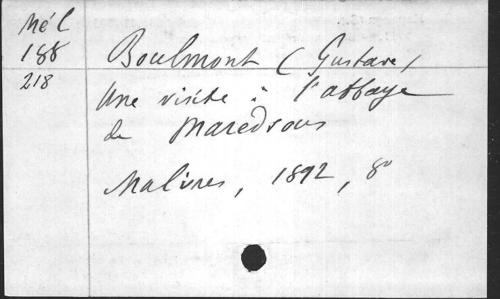 Mél
188
218
Boulmont (Gustave)
Une visite à l'abbaye
de Maredsous
Malines, 1892, 8°